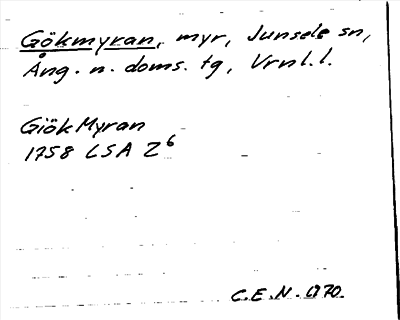 Gökmyran, myr, Junsele sn,
Ång. n. doms. tg, Vrnl.l.
GiökMyran
1758 LSA Z6
C.E.N. 1970.